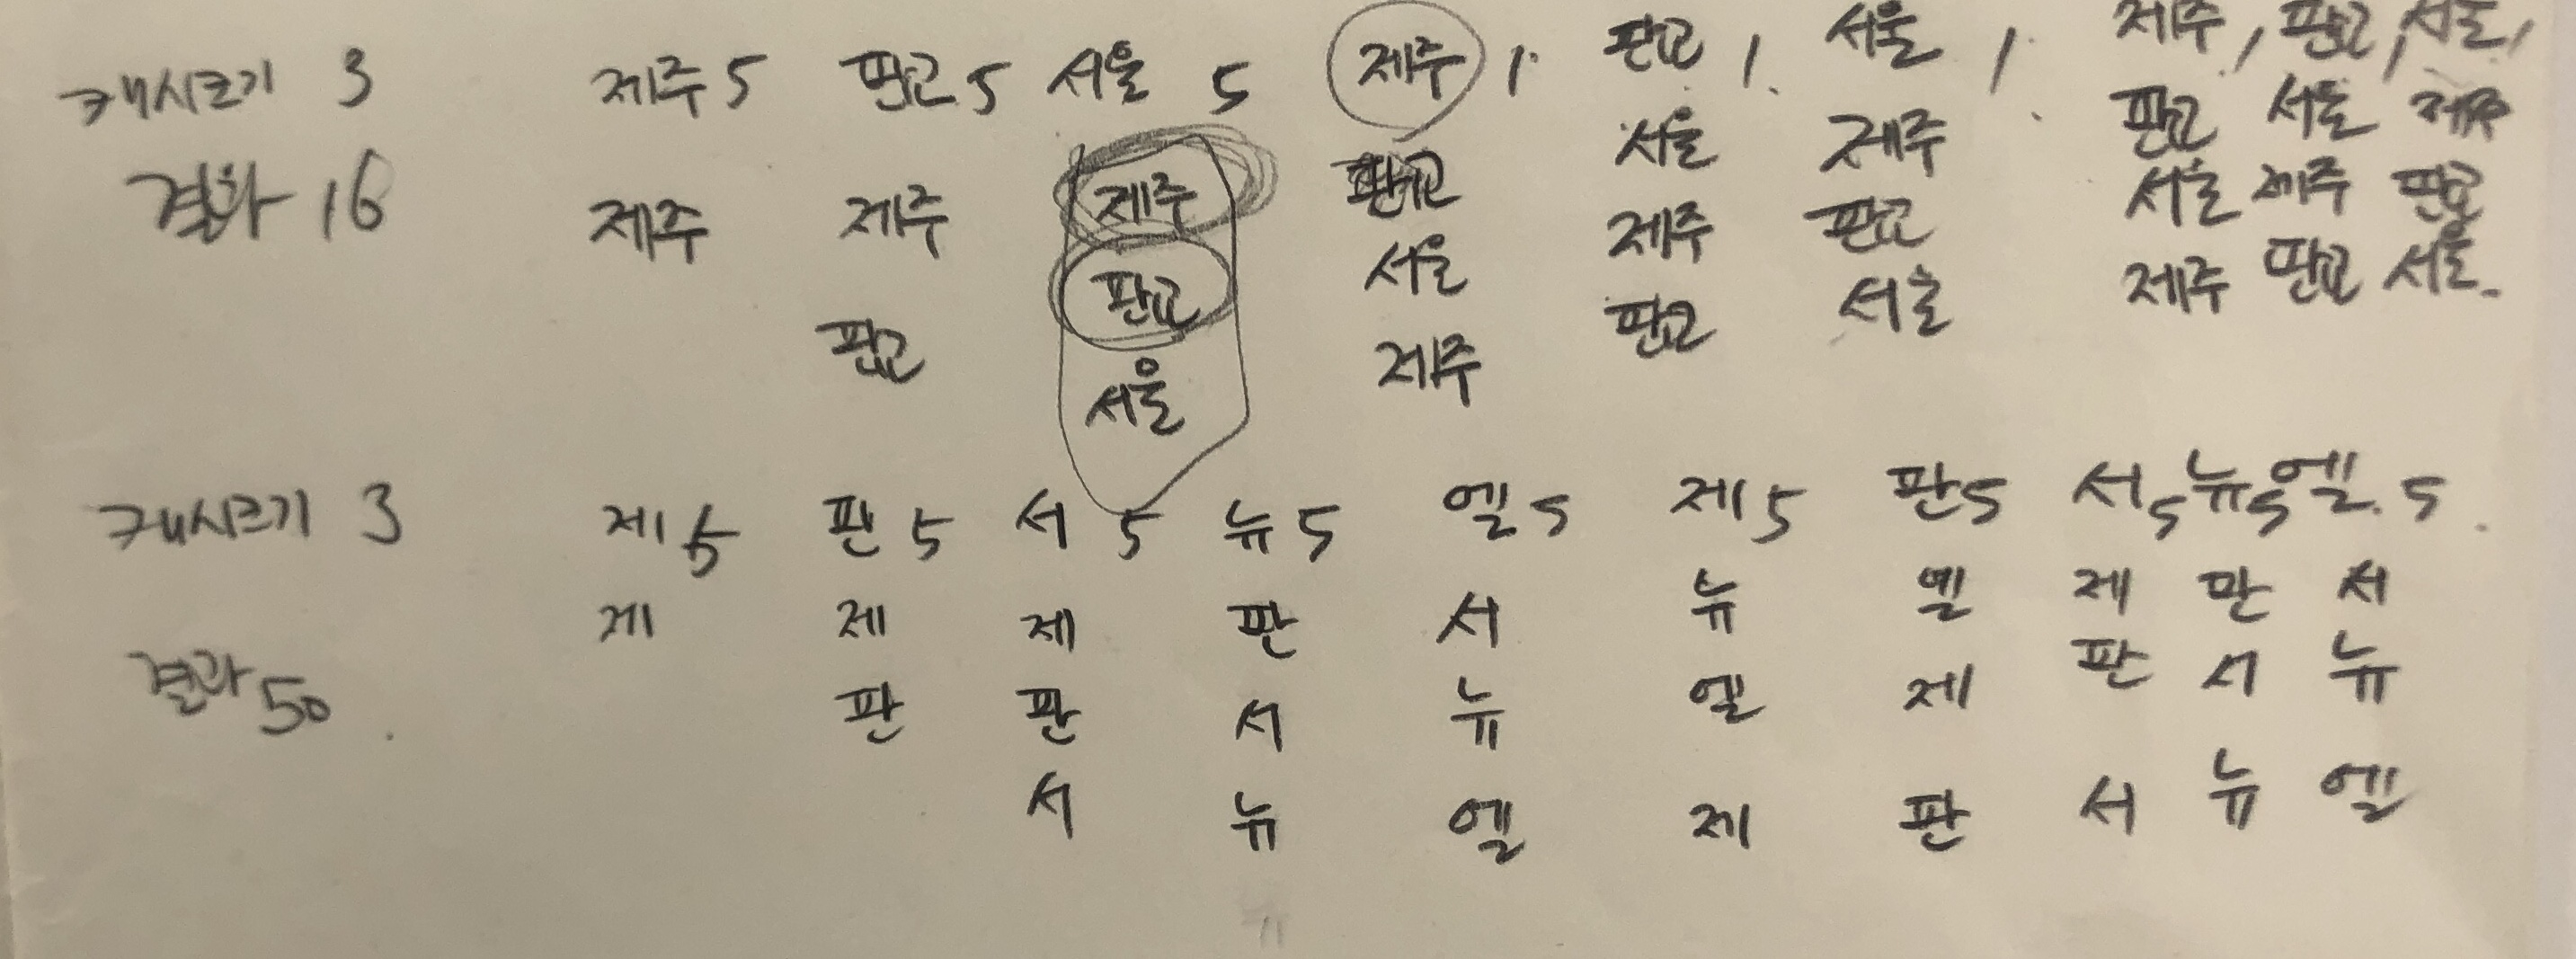 캐시크기 3 제주 5 판교 5 서울 5 제주 1 판교 1 서울 1 제주 1 판교 1 서울 1
서울 제주 판교 서울 제주
결과 16 제주 제주 제주 판교 제주 판교 서울 제주 판교
판교 판교 서울 판교 서울 제주 판교 서울
서울 제주
캐시크기 3 제 5 판 5 서 5 뉴 5 엘 5 제 5 판 5 서 5 뉴 5 엘 5
제 제 제 판 서 뉴 엘 제 판 서
결과 50 판 판 서 뉴 엘 제 판 서 뉴
서 뉴 엘 제 판 서 뉴 엘
뉴